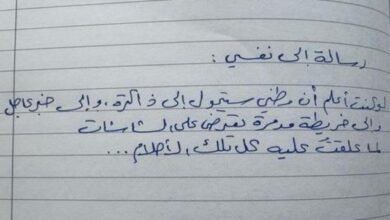 رسالة إلى نفسي :
لو كنت أعلم أن وطني سيتحول إلى ذاكرة، وإلى خبر عاجل
وإلى خريطة مدمرة تعرض على الشاشات
لما علقت عليه كل تلك الأحلام ...